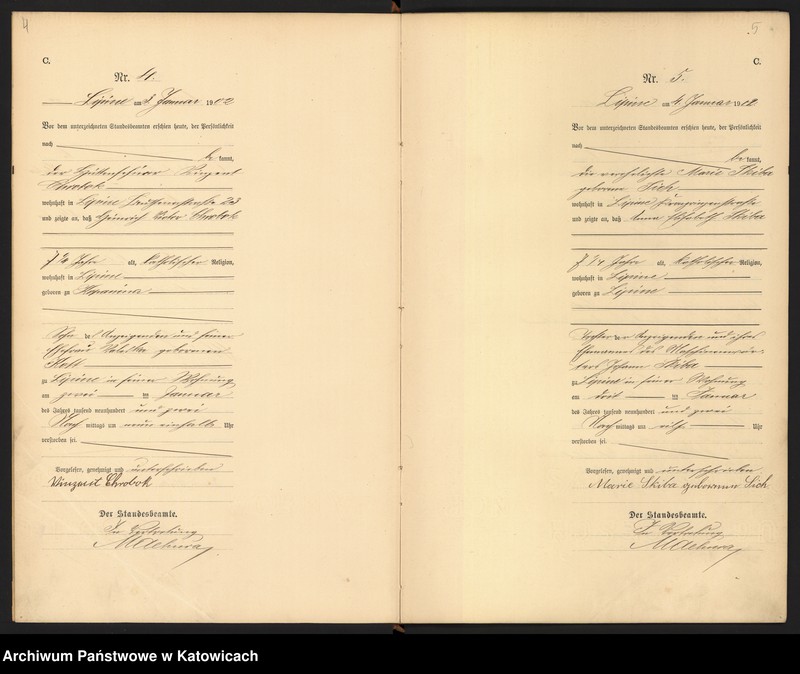 4
C.
Nr. 4.
Lipine am 3 Januar 1902
Vor dem unterzeichneten Standesbeamten erschien heute, der Persönlichkeit
nach
be kannt,
der Vinzent
Chrobok
wohnhaft in Lipine 23
und zeigte an, daß Heinrich Victor Chrobok
Jahr alt, katholischer Religion,
wohnhaft in Lipine
geboren zu
Sohn des Anzeigenden und seiner
Ehefrau geborenen
zu Lipine in seiner Wohnung
am zwei ten Januar
des Jahres tausend neunhundert und zwei
Nach mittags um neun einhalb Uhr
verstorben sei.
Vorgelesen, genehmigt und unterschrieben
Vinzent Chrobok
Der Standesbeamte.
In Vertretung
5
C.
Nr. 5.
Lipine am 4. Januar 1902
Vor dem unterzeichneten Standesbeamten erschien heute, der Persönlichkeit
nach
be kannt,
die verehelichte Marie Skiba
geborene Sich
wohnhaft in Lipine
und zeigte an, daß Anna Elisabeth Skiba
Jahr alt, katholischer Religion,
wohnhaft in Lipine
geboren zu Lipine
Tochter der Anzeigenden und ihres
Ehemannes des Maschinenwär-
ters Johann Skiba
zu Lipine in seiner Wohnung
am drit ten Januar
des Jahres tausend neunhundert und zwei
Nach mittags um Uhr
verstorben sei.
Vorgelesen, genehmigt und unterschrieben
Marie Skiba geborene Sich
Der Standesbeamte.
In Vertretung
Archiwum Państwowe w Katowicach